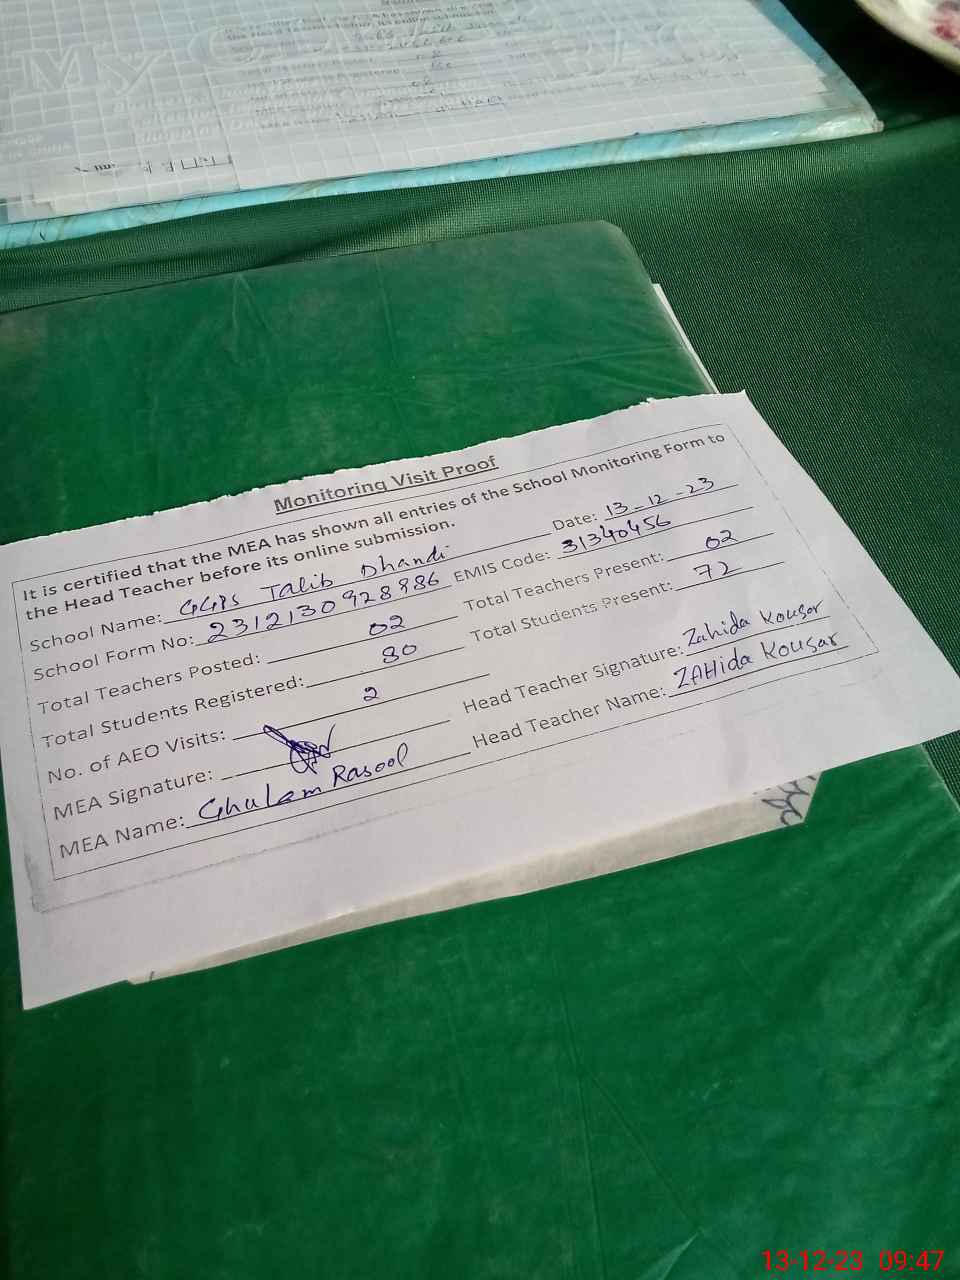 My
Monitoring Visit Proof
It is certified that the MEA has shown all entries of the School Monitoring Form to
the Head Teacher before its online submission.
School Name: GGPS Talib Dhandi Date: 13-12-23
School Form No: 2312130928986 EMIS Code: 31340456
Total Teachers Posted: 02 Total Teachers Present: 02
Total Students Registered: 80 Total Students Present: 72
No. of AEO Visits: 2
MEA Signature: Head Teacher Signature: Zahida Kousar
MEA Name: Ghulam Rasool Head Teacher Name: ZAHida Kousar
13-12-23 09:47